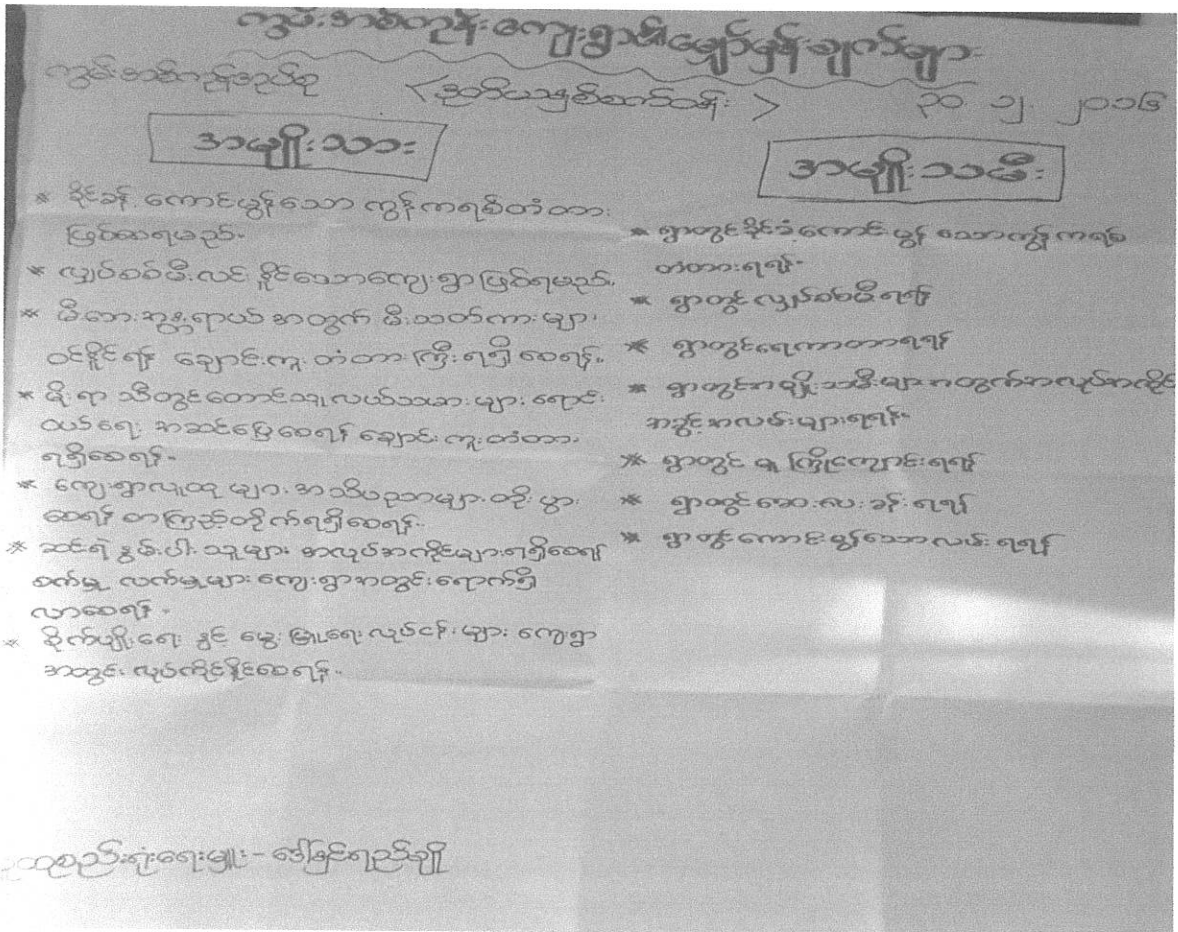 ကွမ်းအစ်ကုန်းကျေးရွာ၏မျှော်မှန်းချက်များ
ကွမ်းအစ်ကုန်းအုပ်စု <ဒုတိယနှစ်စက်ဝန်း> ၃၀ ၁၂ ၂၀၁၆
အမျိုးသား
* ခိုင်ခန့် ကောင်းမွန်သော ကွန်ကရစ်တံတား
ဖြစ်စေရမည်။
* လျှပ်စစ်မီးလင်းနိုင်သောကျေးရွာဖြစ်ရမည်။
* မီးဘေးအန္တရာယ် အတွက် မီးသတ်ကားများ
ဝင်နိုင်ရန် ချောင်းကူးတံတားကြီးရရှိစေရန်။
* မိုးရာသီတွင်တောင်သူလယ်သမားများ ရောင်း
ဝယ်ရေး အဆင်ပြေစေရန် ချောင်းကူးတံတား
ရရှိစေရန်။
* ကျေးရွာလူထုများ အသိပညာများ တိုးပွား
စေရန် စာကြည့်တိုက်ရရှိစေရန်။
* ဆင်းရဲနွမ်းပါးသူများ အလုပ်အကိုင်များရရှိစေရန်
စက်မှု လက်မှုများ ကျေးရွာအတွင်းရောက်ရှိ
လာစေရန်။
* စိုက်ပျိုးရေး နှင့် မွေးမြူရေးလုပ်ငန်းများ ကျေးရွာ
အတွင်း လုပ်ကိုင်နိုင်စေရန်။
အမျိုးသမီး
* ရွာတွင်ခိုင်ခံ့ကောင်းမွန်သောကွန်ကရစ်
တံတားရရန်။
* ရွာတွင်လျှပ်စစ်မီးရရန်
* ရွာတွင်ရေကာတာရရန်
* ရွာတွင်အမျိုးသမီးများအတွက်အလုပ်အကိုင်
အခွင့်အလမ်းများရရန်။
* ရွာတွင် မူကြိုကျောင်းရရန်
* ရွာတွင်ဆေးပေးခန်းရရန်
* ရွာတွင်ကောင်းမွန်သောလမ်းရရန်
လူထုစည်းရုံးရေးမှူး - ဒေါ်ခြင်္